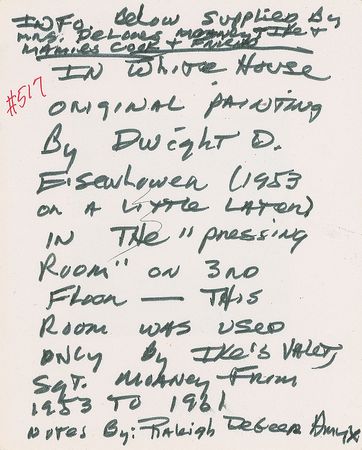 INFO. Below Supplied By
MRS. DeLores MOANEY, IKE &
MAMIES COOK & FRIEND
IN WHITE HOUSE
#517
ORIGINAL PAINTING
By DWIGHT D.
EISENHOWER (1953
OR A LITTLE LATER)
IN THE "PRESSING
ROOM" ON 3RD
FLOOR — THIS
ROOM WAS USED
ONLY By IKE'S VALET,
SGT. MOANEY FROM
1953 TO 1961
NOTES By: RALEIGH DEGEER AMYX